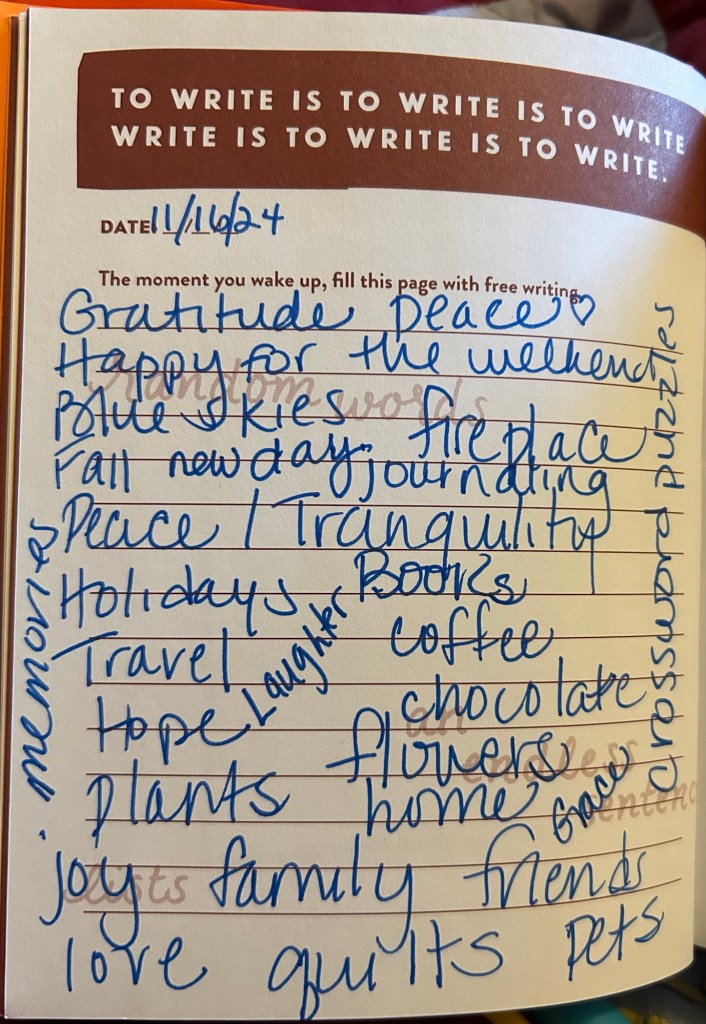 TO WRITE IS TO WRITE IS TO WRITE
WRITE IS TO WRITE IS TO WRITE.
DATE 11/16/24
The moment you wake up, fill this page with free writing.
Gratitude peace ♡
Happy for the weekend
random words
Blue skies fireplace
Fall new day journaling
Peace / Tranquility
Holidays Books
Travel Laughter coffee
Hope chocolate
an
flowers
endless
plants home Grace
sentence
joy family friends
lists
love quilts pets
memories
crossword puzzles